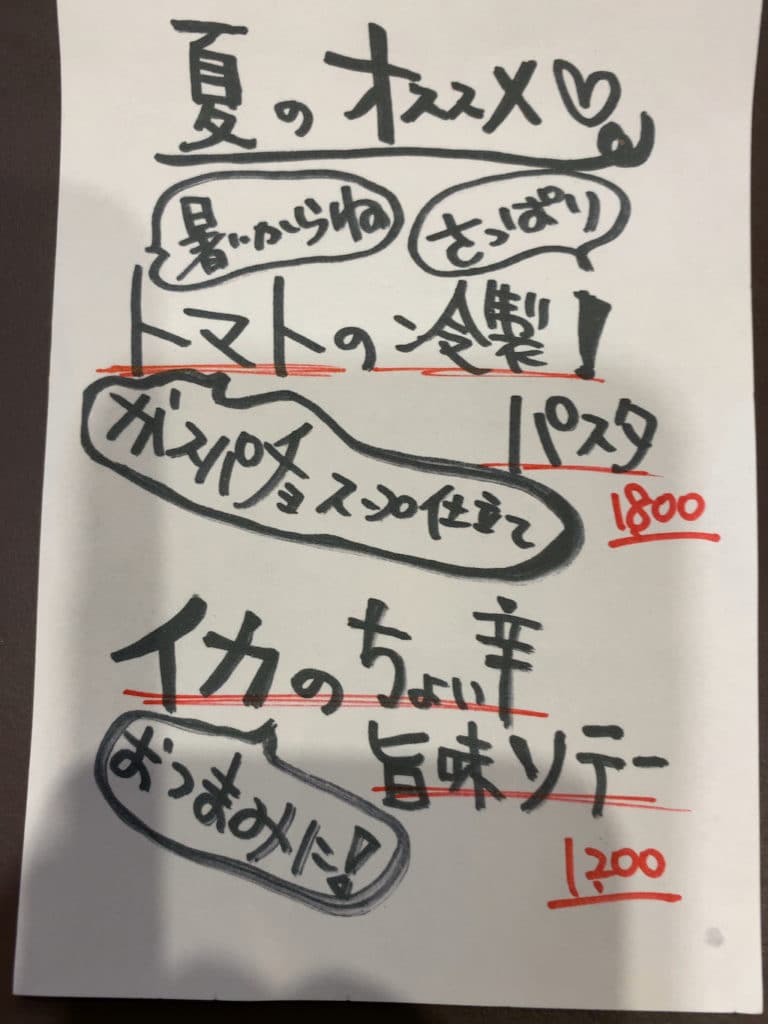 夏のオススメ♡
暑いからね
さっぱり
トマトの冷製!
パスタ
ガスパチョスープ仕立て
1,800
イカのちょい辛
旨味ソテー
おつまみに!
1,200